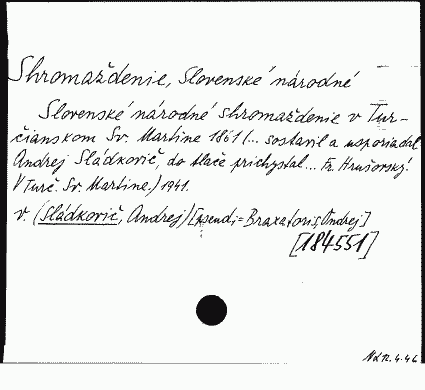 Shromaždenie, Slovenské národné
Slovenské národné shromaždenie v Tur-
čianskom Sv. Martine 1861 (... sostavil a usporiadal
Andrej Sládkovič, do tlače prichystal... Fr. Hrušovský.
V Turč. Sv. Martine,) 1941.
v. (Sládkovič, Andrej) [pseudi = Braxatoris, Andrej]
[184551]
12.4.46